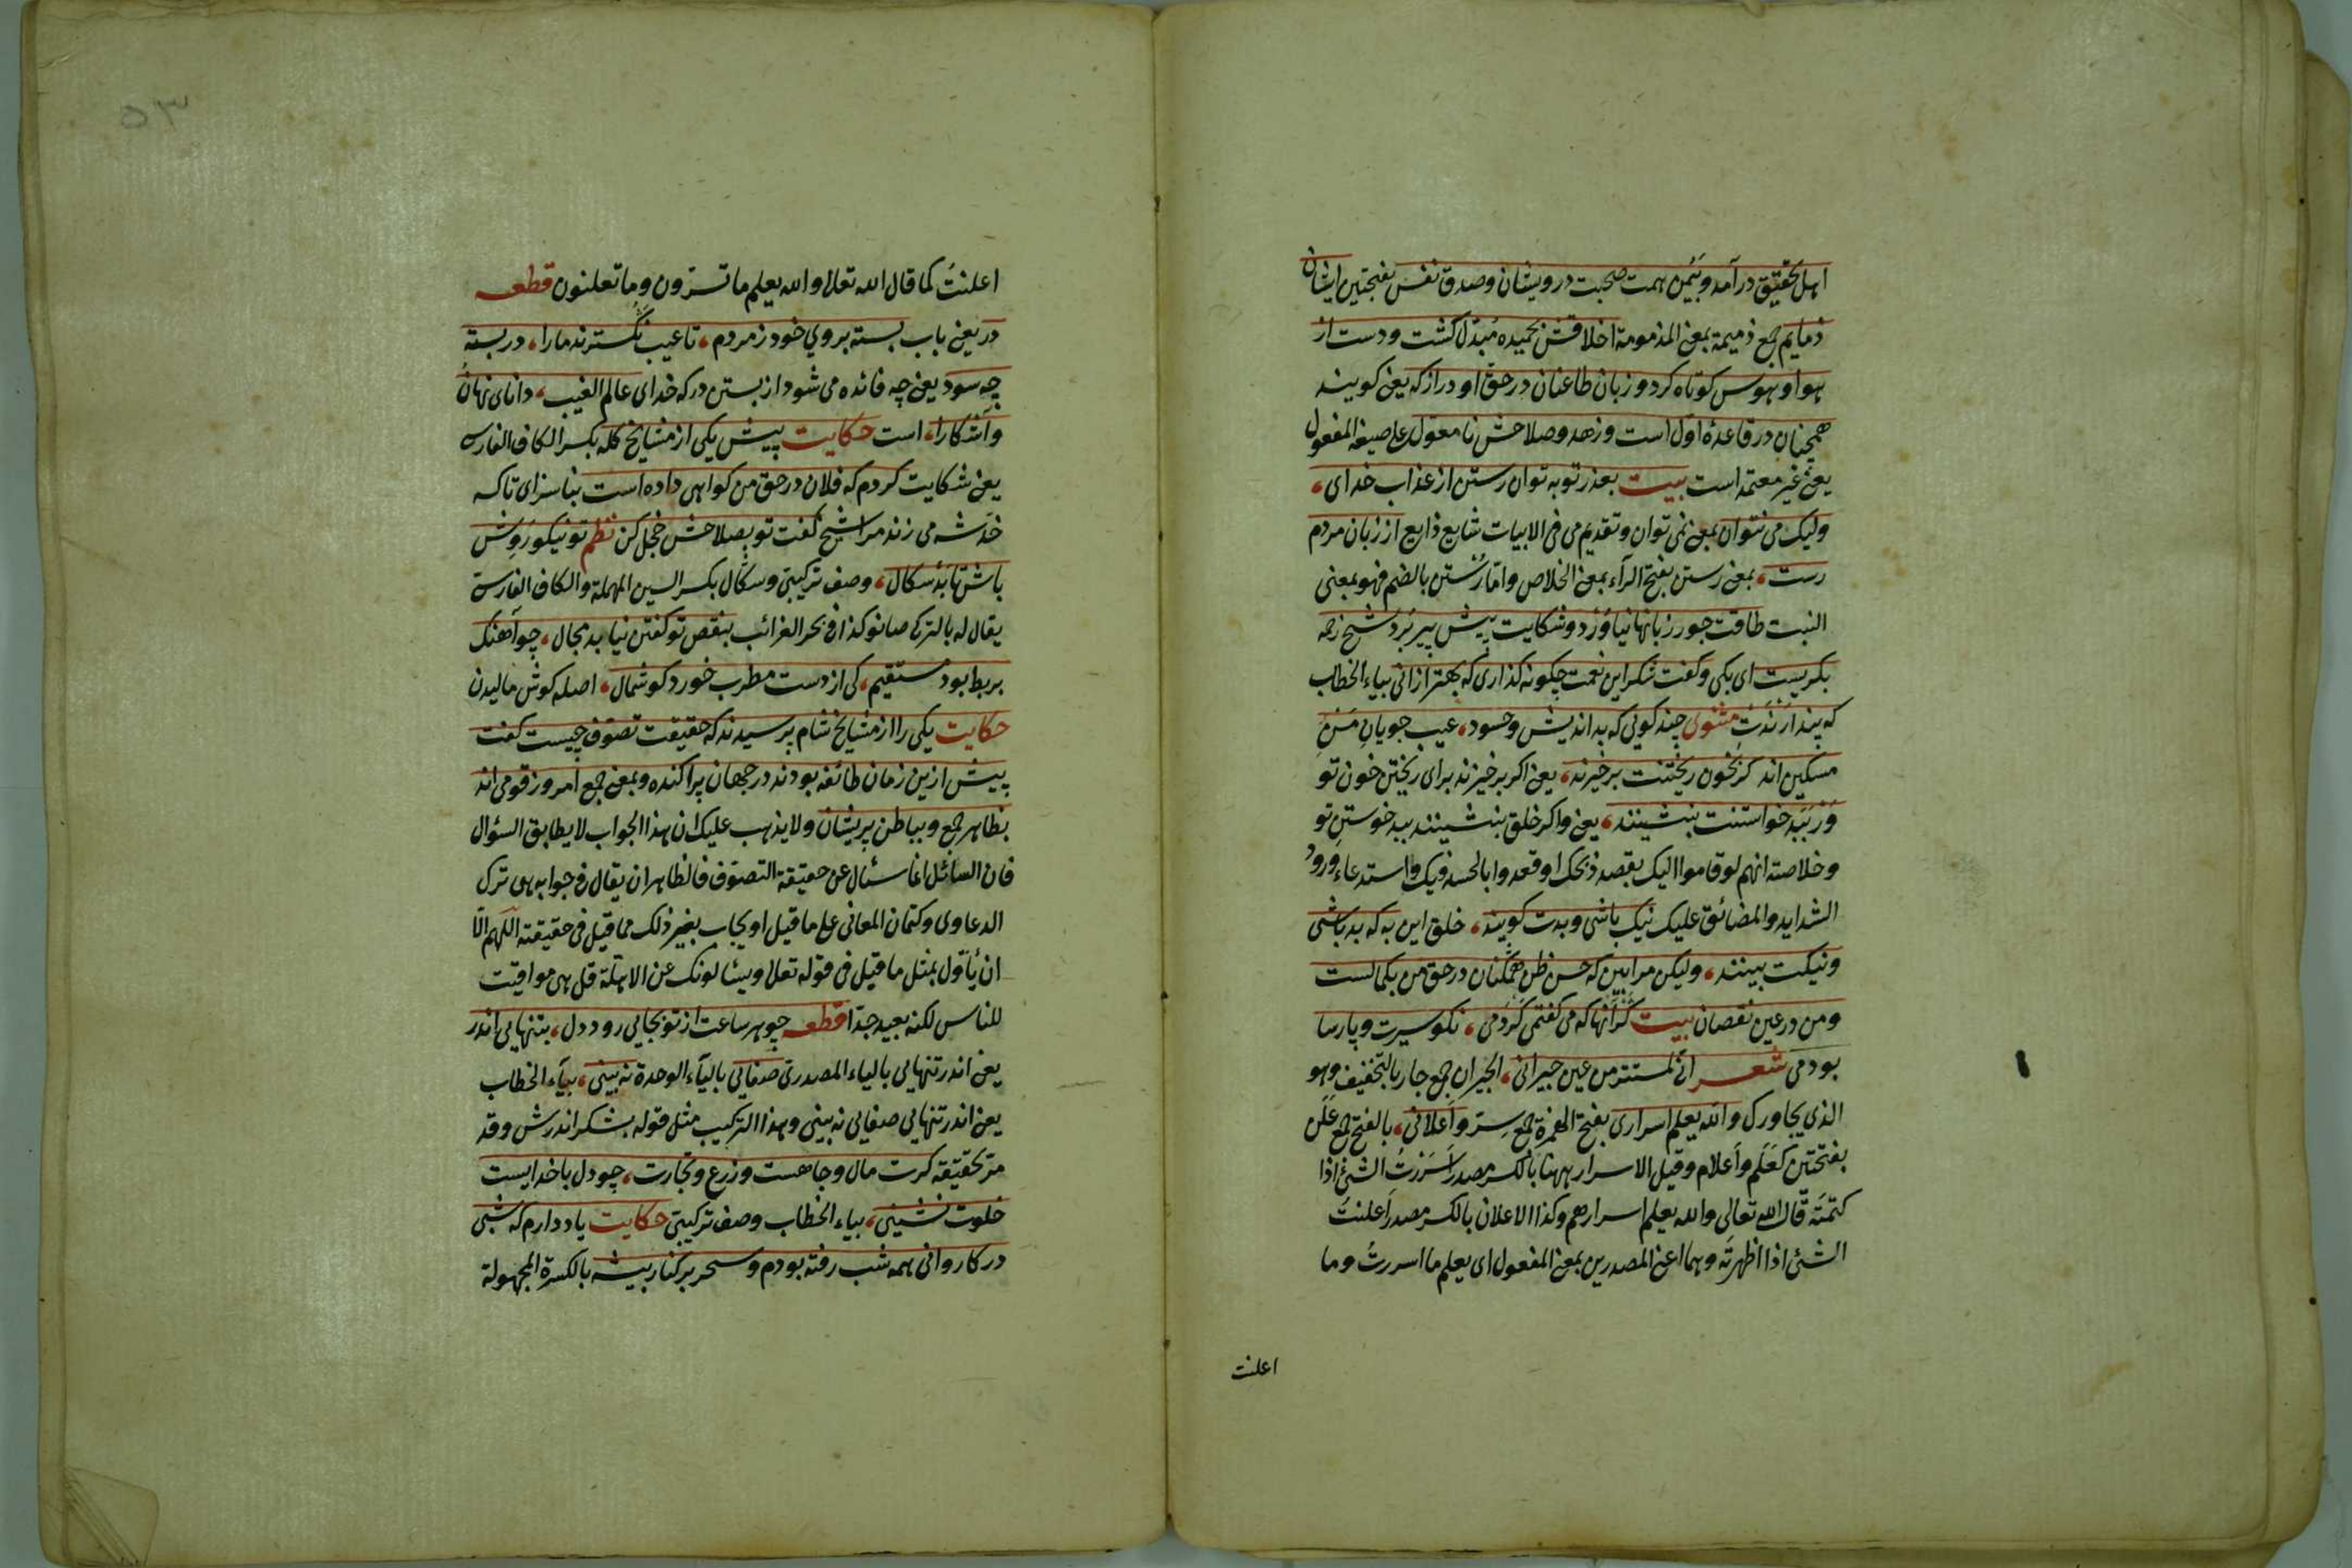 اهل تحقیق درآمد وبیمن همت صحبت درویشان وصدق نفس بفتحتین ایشان
ذمایم جمع ذمیمة بمعنی المذمومة اخلاقش بحمیده مُبدّل کشت ودست از
هوا وهوس کوتاه کرد وزبان طاعنان در حقّ او دراز که یعنی کویند
همچنان در قاعدهٔ اول است وزهد وصلاحش نا معوّل علی صیغة المفعول
یعنی غیر معتمد است بیت بعذر توبه توان رستن از عذاب خدای،
ولیک می نتوان بمعنی نمی توان وتقدیم می فی الابیات شایع ذایع از زبان مردم
رست، بمعنی رستن بفتح الرآء بمعنی الخلاص وامّا رُستن بالضم فهو بمعنی
النبت طاقت جور زبانها نیاوَرْد وشکایت پیش پیر بُرد شیخ رحمه
بکریست ای بکی وکفت شکر این نعمت چکونه کذاری که بهتر ازانی بیاء الخطاب
که پندارَنْدَت مثنوی چند کویی که بداندیش وحسود، عیب جویانِ مَنِ
مسکین اند کز بخون ریختنت برخیزند، یعنی اکر برخیزند برای ریختن خون تو
وَرْ بَبَد خواستنت بنشینند، یعنی واکر خلق بنشینند ببد خوستنِ تو
وخلاصته انهم لو قاموا الیک بقصد ذبحک او قعدوا بالحسد فیک واستدعاء ورود
الشداید والمضائق علیک نیک باشی وبدت کویند، خلق این به که بد باشی
ونیکت بینند، ولیکن مرا ببین که حسن ظن همکنان در حق من بکمالست
ومن در عین نقصان بیت کر آنها که می کفتمی کردمی، نکو سیرت وپارسا
بودمی شعر انّی لمستتر من عین جیرانی، الجیران جمع جار بالتخفیف وهو
الذی یجاورک والله یعلم اسراری بفتح الهمزة جمع سِرّ وأعلانی، بالفتح جمع عَلَن
بفتحتین کعَلَم وأعلام وقیل الاسرار ههنا بالکسر مصدر اَسْرَرْتُ الشئ اذا
کتمتَه قال الله تعالی والله یعلم اسرارهم وکذا الاعلان بالکسر مصدر اَعلنتُ
الشئ اذا اظهرتَه وهما اعنی المصدرین بمعنی المفعول ای یعلم ما اسررتُ وما
اعلنت
اعلنتُ کما قال الله تعالی والله یعلم ما تسرّون وما تعلنون قطعه
در یعنی باب بسته بروی خود ز مردم، تا عیب نکسترند مارا، در بسته
چه سود یعنی چه فائده می شود از بستن در که خدای عالم الغیب، دانای نهانُ
وآشکارا، است حکایت پیش یکی از مشایخ کله بکسر الکاف الفارسی
یعنی شکایت کردم که فلان در حق من کواهی داده است بناسزای تاکه
خدشه می زند مرا شیخ کفت تو بصلاحش خجل کن نظم تو نیکو رَوِش
باش تا بَدْسکال، وصف ترکیبیّ وسکال بکسر السین المهملة والکاف الفارسی
یقال له بالترکی صانو کذا فی بحر الغرائب بنقص تو کفتن نیابد مجال، چو آهنک
بربط بود مستقیم، کی از دست مطرب خورد کوشمال، اصله کوش مالیدن
حکایت یکی را از مشایخ شام پرسیدند که حقیقت تصوّف چیست کفت
پیش ازین زمان طائفه بودند در جهان پراکنده وبمعنی جمع امروز قومی اند
بظاهر جمع وبباطن پریشان ولا یذهب علیک ان هذا الجواب لا یطابق السؤال
فان السائل انما سئال عن حقیقة التصوّف فالظاهر ان یقال فی جوابه هی ترک
الدعاوی وکتمان المعانی علی ما قیل او یجاب بغیر ذلک مما قیل فی حقیقته اللّهم الّا
ان یُأوّل بمثل ما قیل فی قوله تعالی ویسئالونک عن الاهلّة قل هی مواقیت
للناس لکنه بعید جدّا قطعه چو هر ساعت از تو بجایی رود دل، بتنهایی اندر
یعنی اندر تنهایی بالیاء المصدریّ صفایی بالیآء الوحدة نه بینی، بیآء الخطاب
یعنی اندر تنهایی صفایی نه بینی وهذا الترکیب مثل قوله بشکر اندرش وقد
مرّ تحقیقه کرت مال وجاهست وزرع وتجارت، چو دل باخدایست
خلوت نشینی، بیاء الخطاب وصف ترکیبیّ حکایت یاد دارم که شبی
در کاروانی همه شب رفته بودم وسحر بر کنار بیشه بالکسرة المجهولة